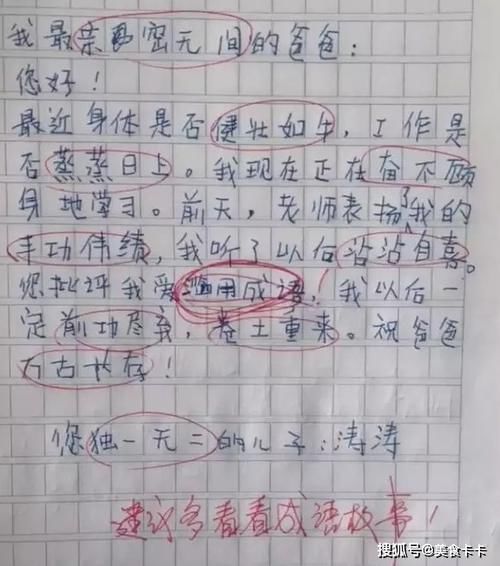 我最亲密无间的爸爸：
您好！
最近身体是否健壮如牛，工作是
否蒸蒸日上。我现在正在奋不顾
身地学习。前天，老师表扬了我的
丰功伟绩，我听了以后沾沾自喜。
您批评我爱滥用成语，我以后一
定前功尽弃，卷土重来。祝爸爸
万古长存！
您独一无二的儿子：涛涛
建议多看看成语故事！
搜狐号@美食卡卡